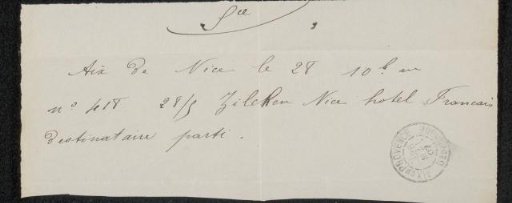 Sce
Aix de Nice le 28 10h m
nº 418 28/5 Zilcken Nice hotel Francais
destinataire parti.